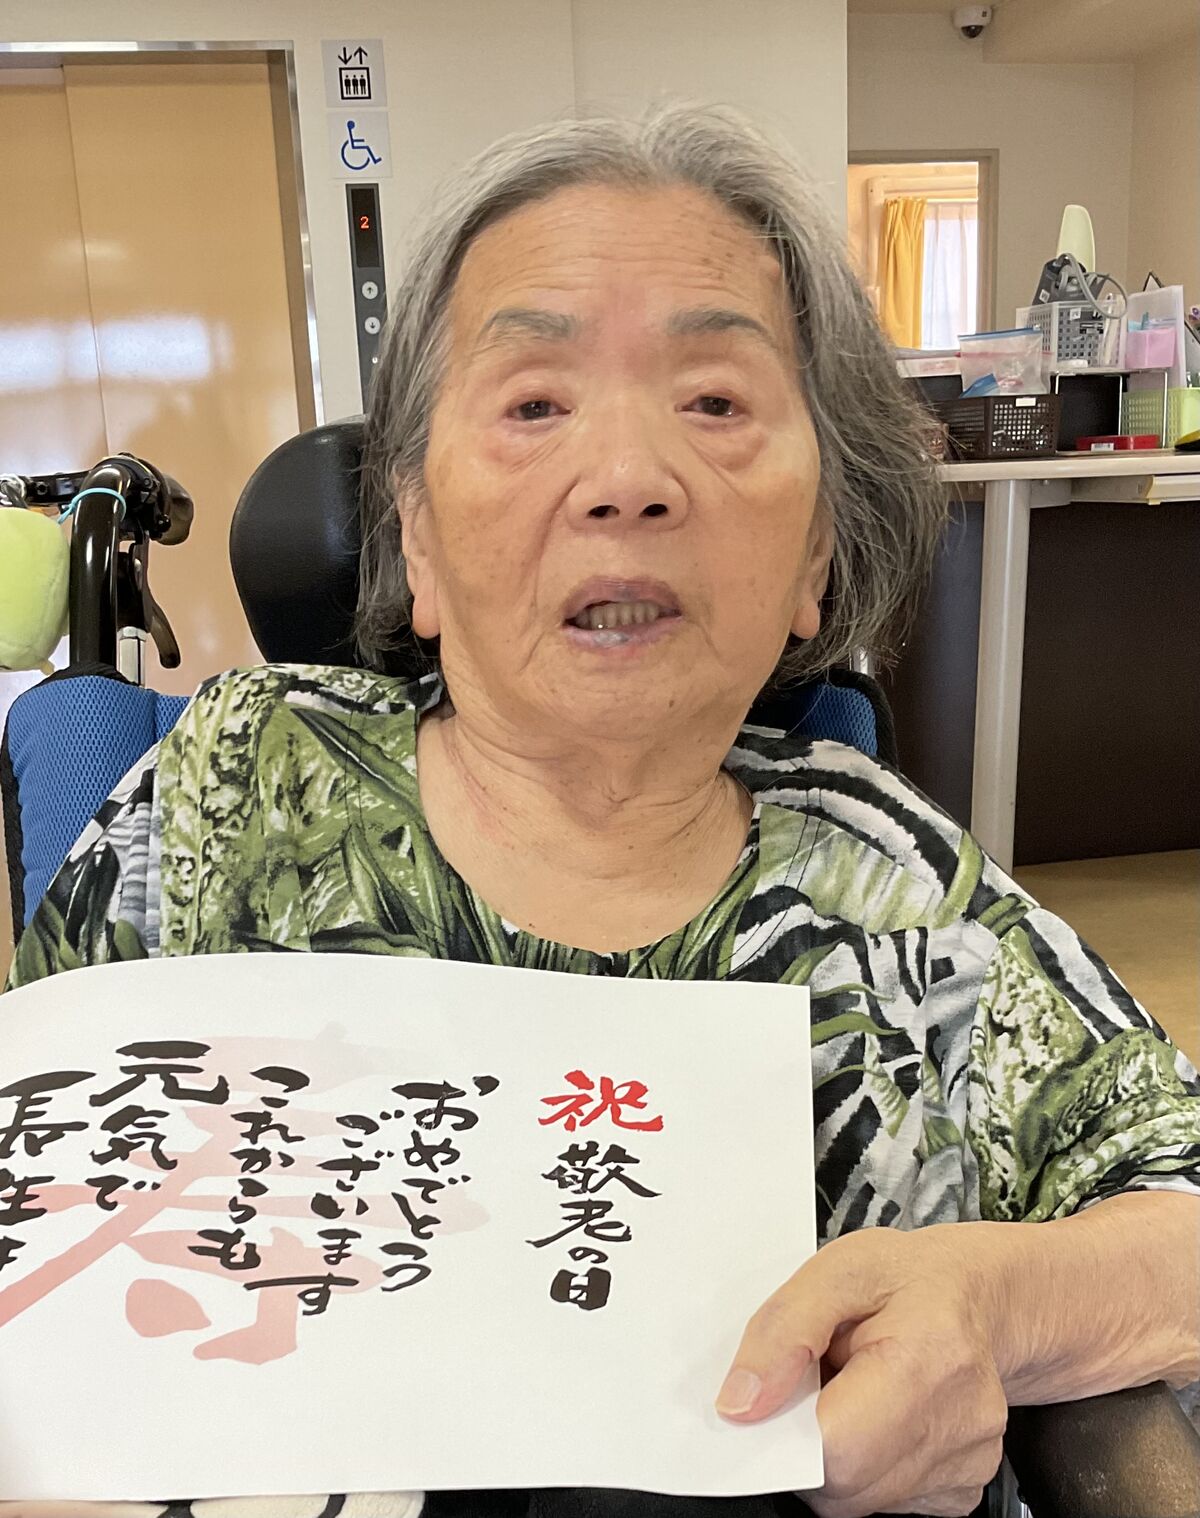 2
祝敬老の日
おめでとう
ございます
これからも
元気で
長生
寿